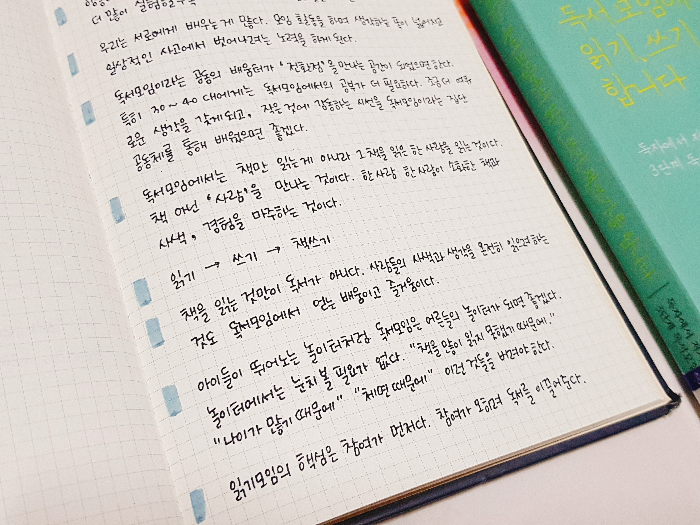 더 많이 실험할수록
우리는 서로에게 배우는게 많다. 모임 활동을 하며 생각하는 폭이 넓어지고
일상적인 사고에서 벗어나려는 노력을 하게 된다.
독서모임이라는 공동의 배움터가 '전환점'을 만나는 공간이 되었으면 한다.
특히 30~40대에게는 독서모임에서의 공부가 더 필요하다. 조금 더
로운 생각을 갖게되고, 작은것에 감동하는 시선을 독서모임이라는 집단
공동체를 통해 배웠으면 좋겠다.
독서모임에서는 책만 읽는게 아니라 그책을 읽은 한 사람을 읽는것이다.
책 아닌 '사람'을 만나는 것이다. 한사람 한사람이 소화한 책과
사색, 경험을 마주하는 것이다.
읽기 → 쓰기 → 책쓰기
책을 읽는 것만이 독서가 아니다. 사람들의 사색과 생각을 온전히 읽으려하는
것도 독서모임에서 얻는 배움이고 즐거움이다.
아이들이 뛰어노는 놀이터처럼 독서모임은 어른들의 놀이터가 되면 좋겠다.
놀이터에서는 눈치볼 필요가 없다. "책을 많이 읽지 못했기 때문에."
"나이가 많기 때문에" "체면 때문에" 이런 것들을 버려야 한다.
읽기모임의 핵심은 참여가 먼저다. 참여가 오히려 독서를 이끌어준다.
독서모임에
읽기, 쓰기
합니다
독자에서
3단계